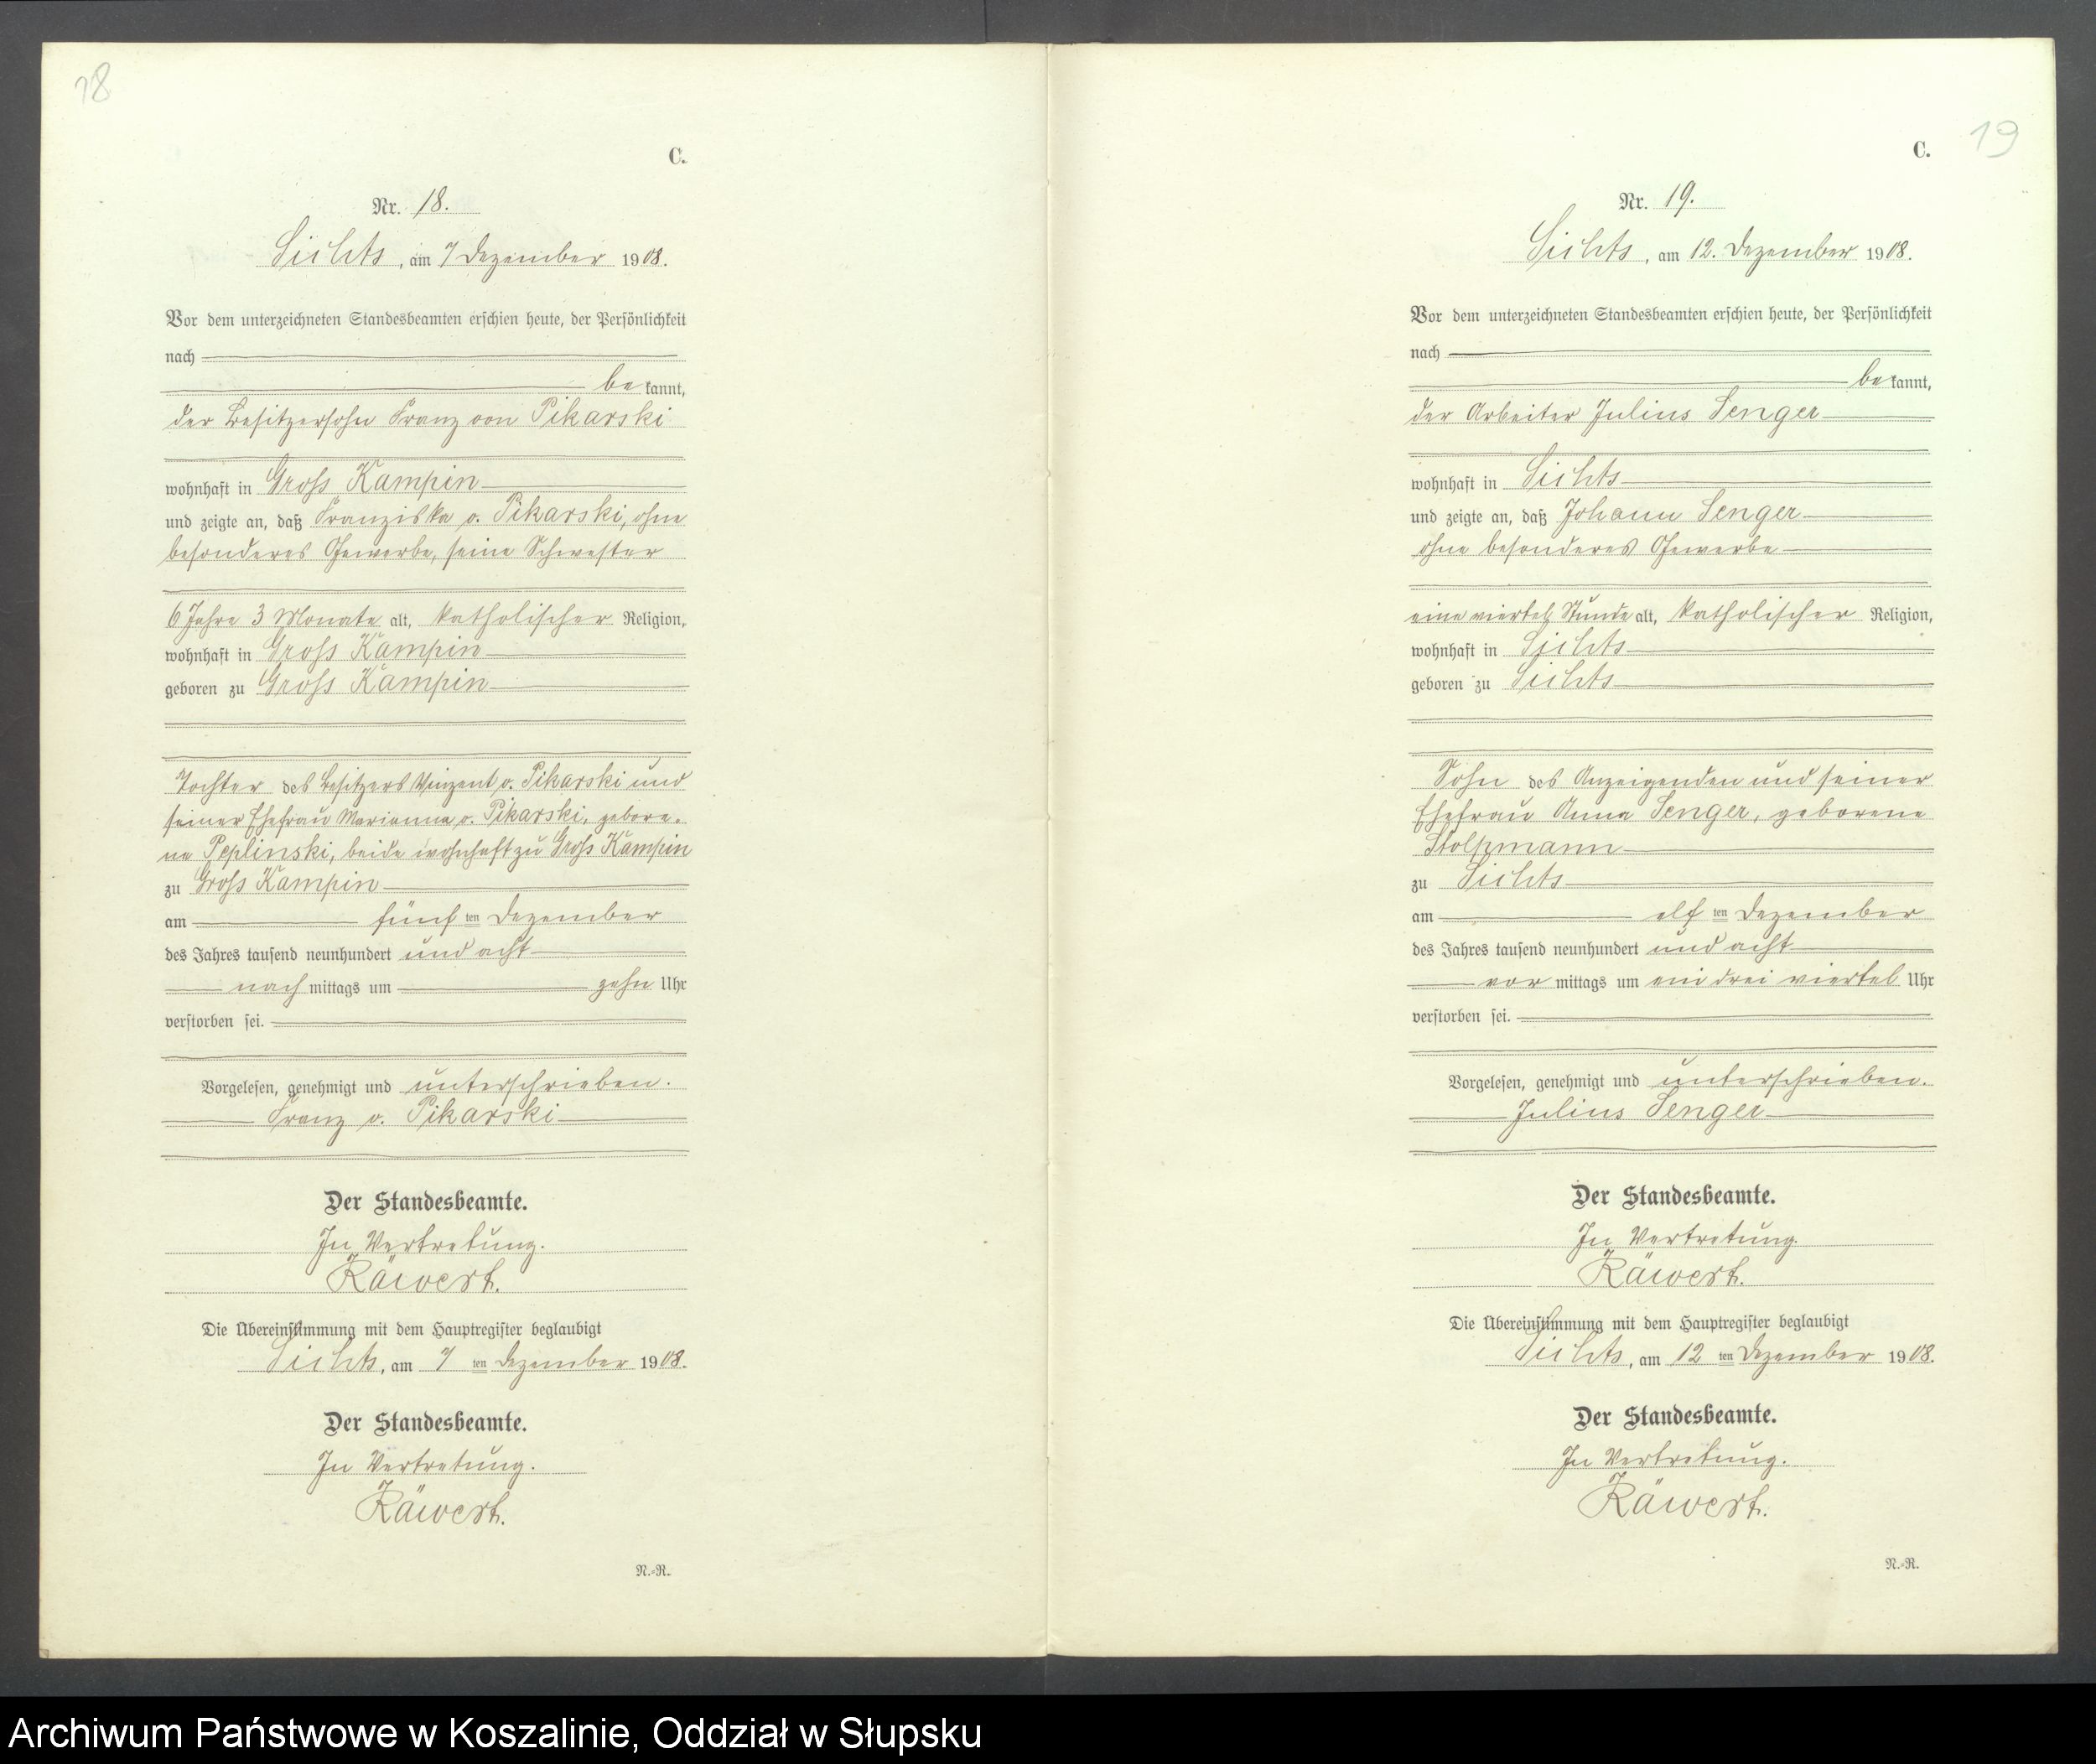 18
C.
Nr. 18.
Sichts, am 7 Dezember 1908.
Vor dem unterzeichneten Standesbeamten erschien heute, der Persönlichkeit
nach
bekannt,
der Besitzersohn Franz von Pikarski
wohnhaft in Gross Kampin
und zeigte an, daß Franziska v. Pikarski, ohne
besonderes Gewerbe, seine Schwester
6 Jahre 3 Monate alt, katholischer Religion,
wohnhaft in Gross Kampin
geboren zu Gross Kampin
Tochter des Besitzers Vinzent v. Pikarski und
seiner Ehefrau Marianna v. Pikarski, gebore-
ne Peplinski, beide wohnhaft zu Gross Kampin
zu Gross Kampin
am fünften Dezember
des Jahres tausend neunhundert und acht
nachmittags um zehn Uhr
verstorben sei.
Vorgelesen, genehmigt und unterschrieben.
Franz v. Pikarski
Der Standesbeamte.
In Vertretung.
Räwert.
Die Übereinstimmung mit dem Hauptregister beglaubigt
Sichts, am 7 ten Dezember 1908.
Der Standesbeamte.
In Vertretung.
Räwert.
N.=R.
19
C.
Nr. 19.
Sichts, am 12. Dezember 1908.
Vor dem unterzeichneten Standesbeamten erschien heute, der Persönlichkeit
nach
bekannt,
der Arbeiter Julius Senger
wohnhaft in Sichts
und zeigte an, daß Johann Senger
ohne besonderes Gewerbe
eine viertel Stunde alt, katholischer Religion,
wohnhaft in Sichts
geboren zu Sichts
Sohn des Anzeigenden und seiner
Ehefrau Anna Senger, geborene
Stolpmann
zu Sichts
am elften Dezember
des Jahres tausend neunhundert und acht
vormittags um ein drei viertel Uhr
verstorben sei.
Vorgelesen, genehmigt und unterschrieben.
Julius Senger
Der Standesbeamte.
In Vertretung.
Räwert.
Die Übereinstimmung mit dem Hauptregister beglaubigt
Sichts, am 12 ten Dezember 1908.
Der Standesbeamte.
In Vertretung.
Räwert.
N.=R.
Archiwum Państwowe w Koszalinie, Oddział w Słupsku